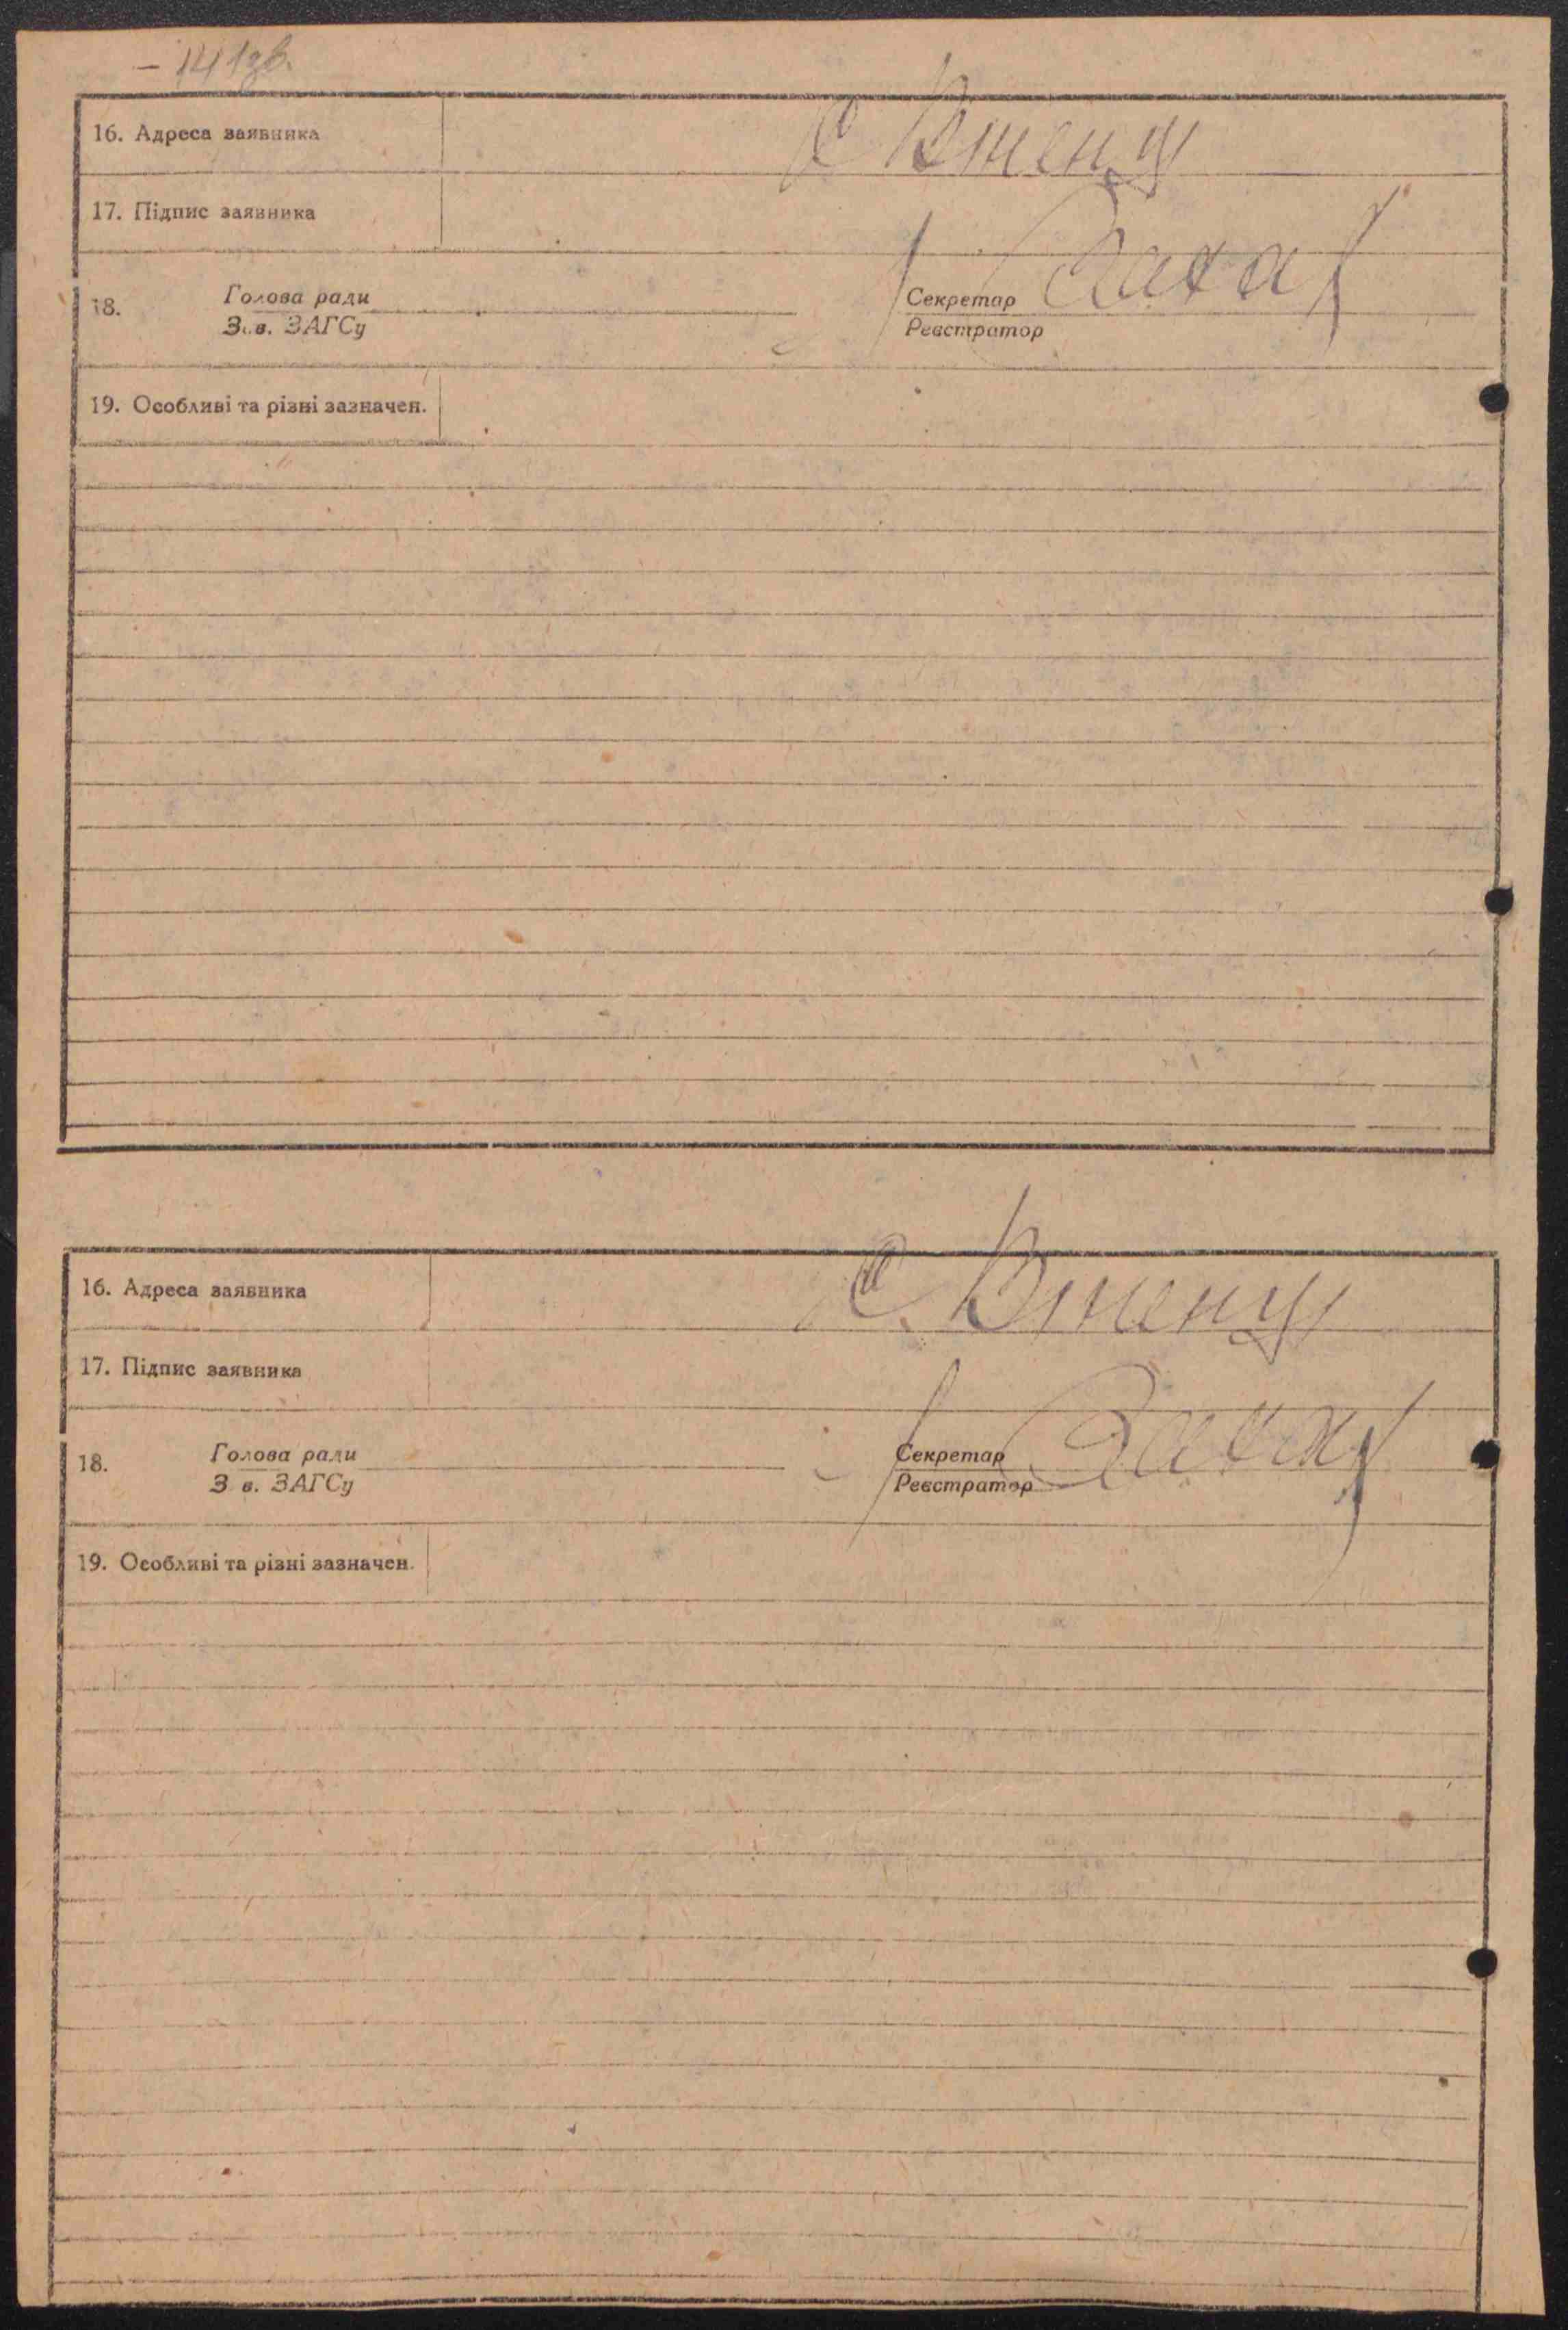 – 141зв.
16. Адреса заявника
17. Підпис заявника
18. Голова ради Секретар
Зав. ЗАГСу Реєстратор
19. Особливі та різні зазначен.
16. Адреса заявника
17. Підпис заявника
18. Голова ради Секретар
З в. ЗАГСу Реєстратор
19. Особливі та різні зазначен.